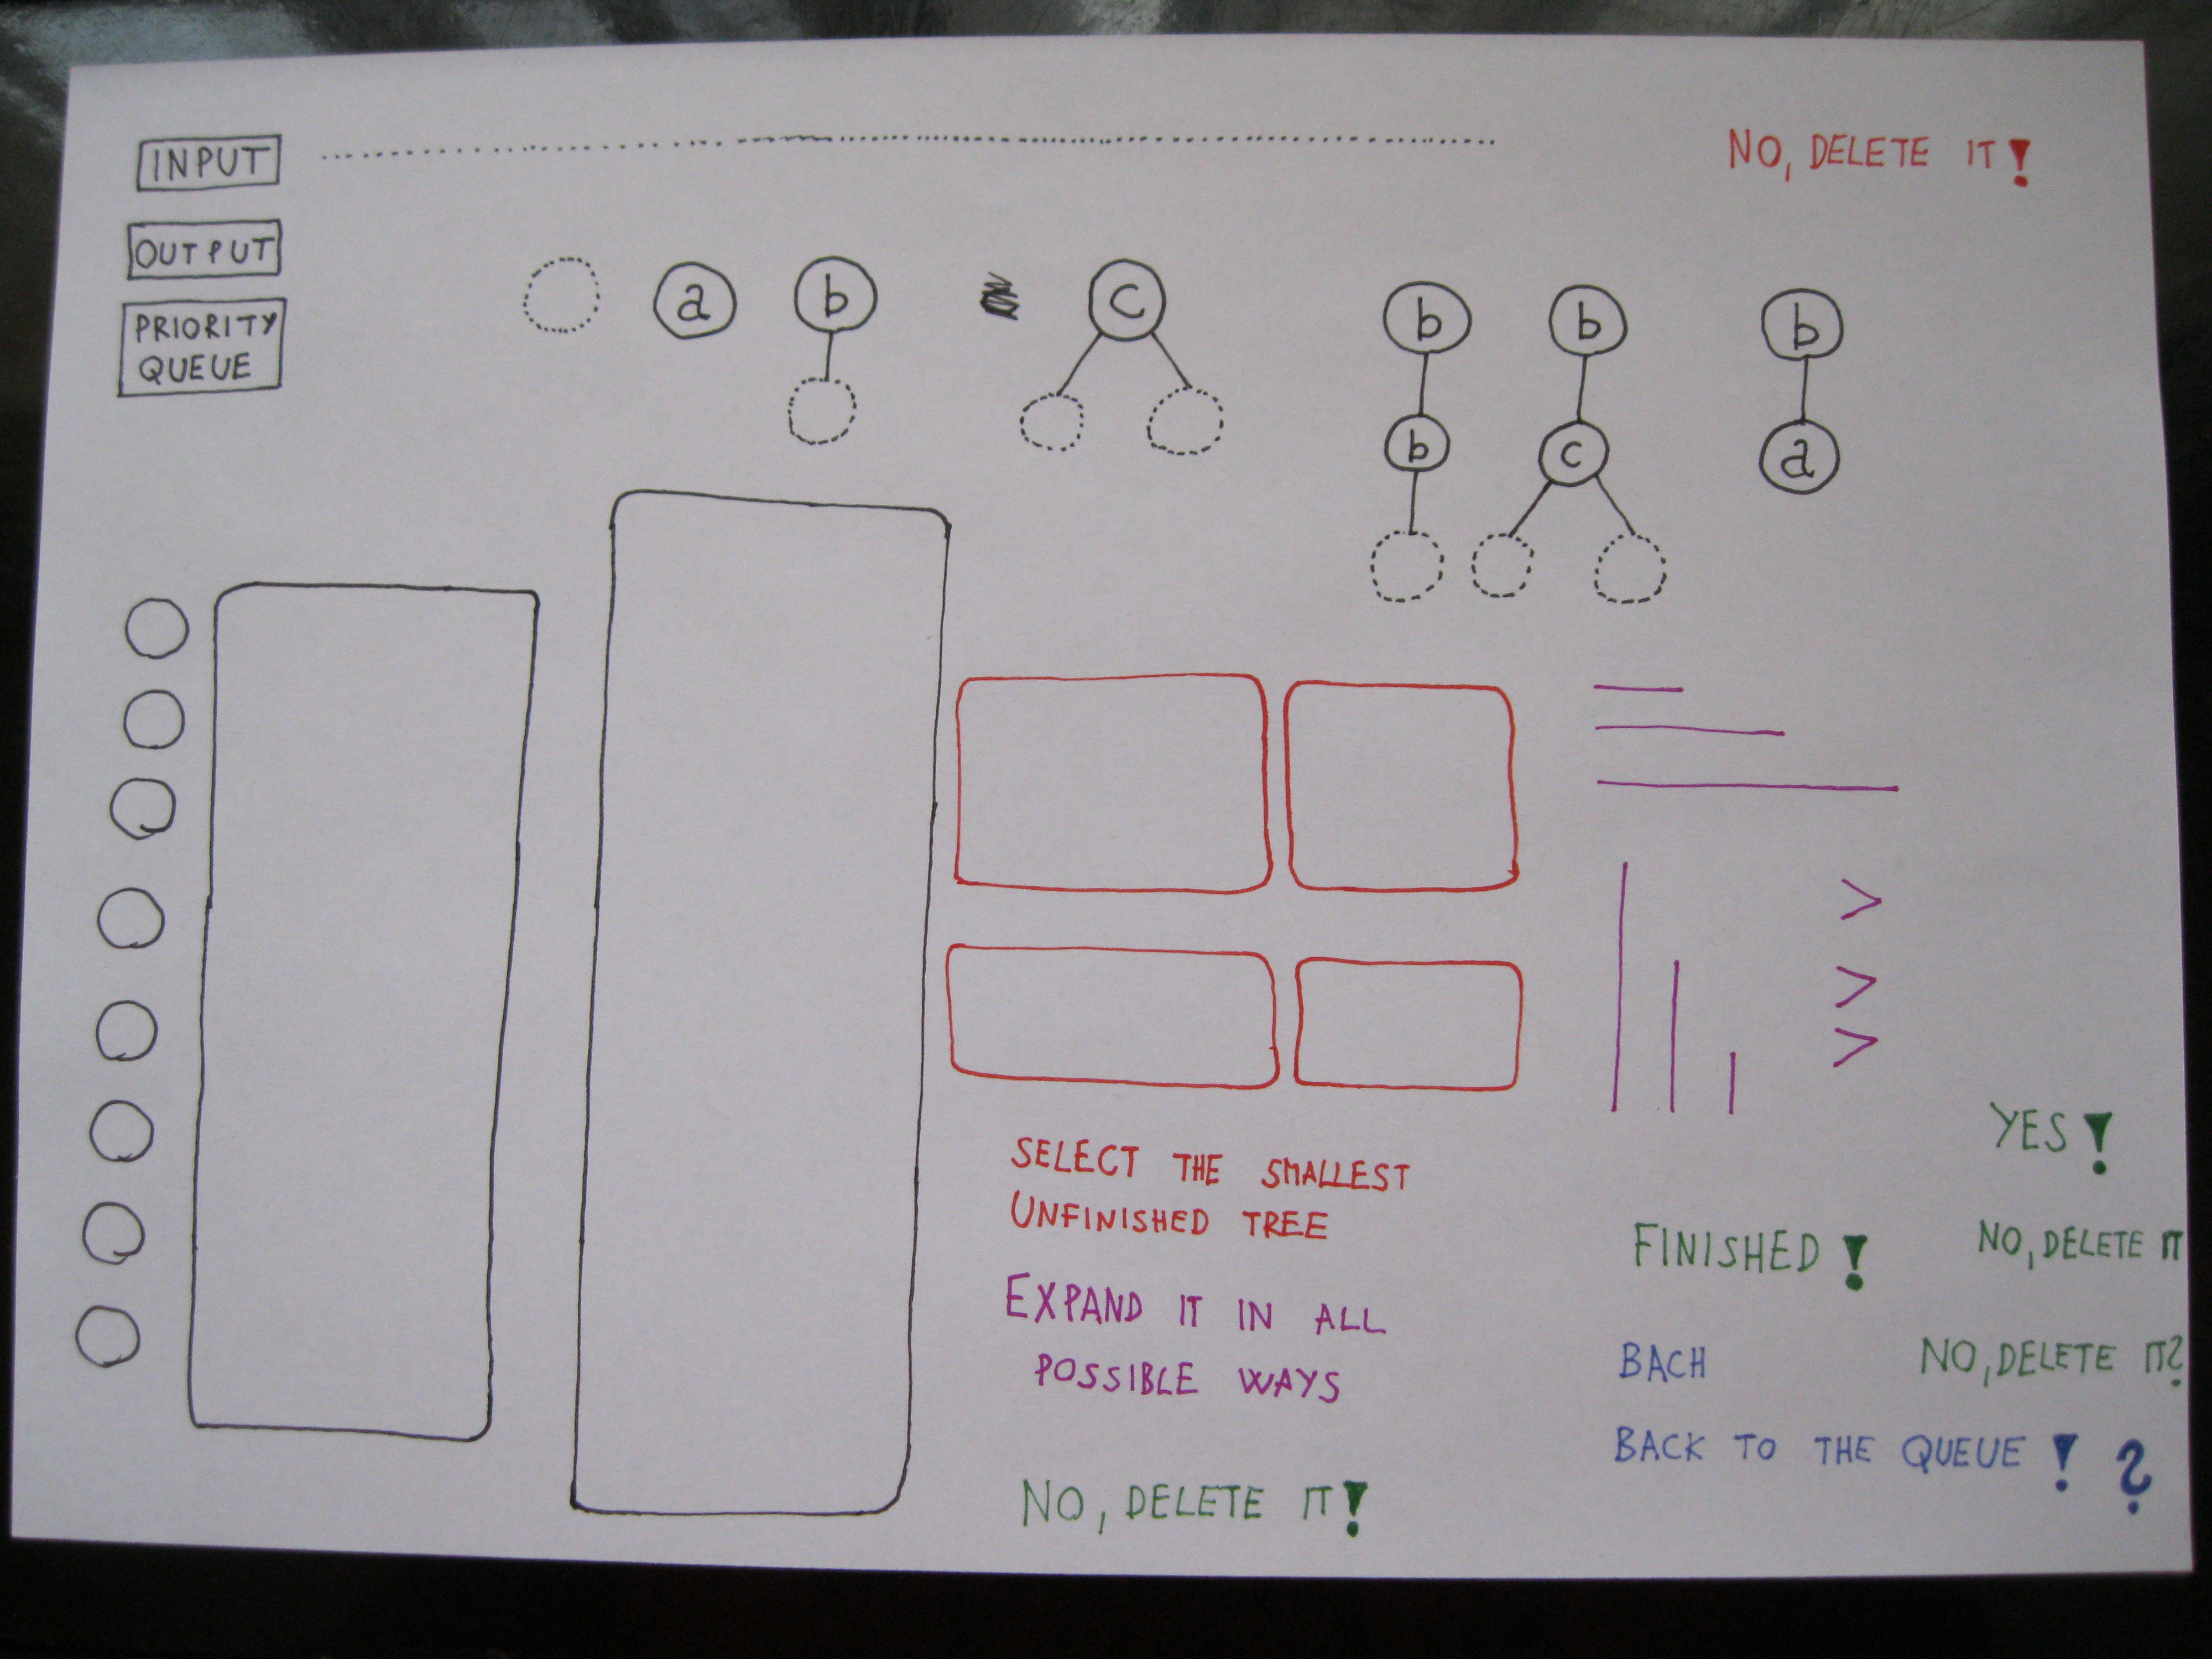 INPUT
NO, DELETE IT!
OUTPUT
PRIORITY
QUEUE
a
b
c
b
b
b
b
c
a
SELECT THE SMALLEST
UNFINISHED TREE
EXPAND IT IN ALL
POSSIBLE WAYS
NO, DELETE IT!
YES!
FINISHED!
NO, DELETE IT
BACH
NO, DELETE IT?
BACK TO THE QUEUE! ?